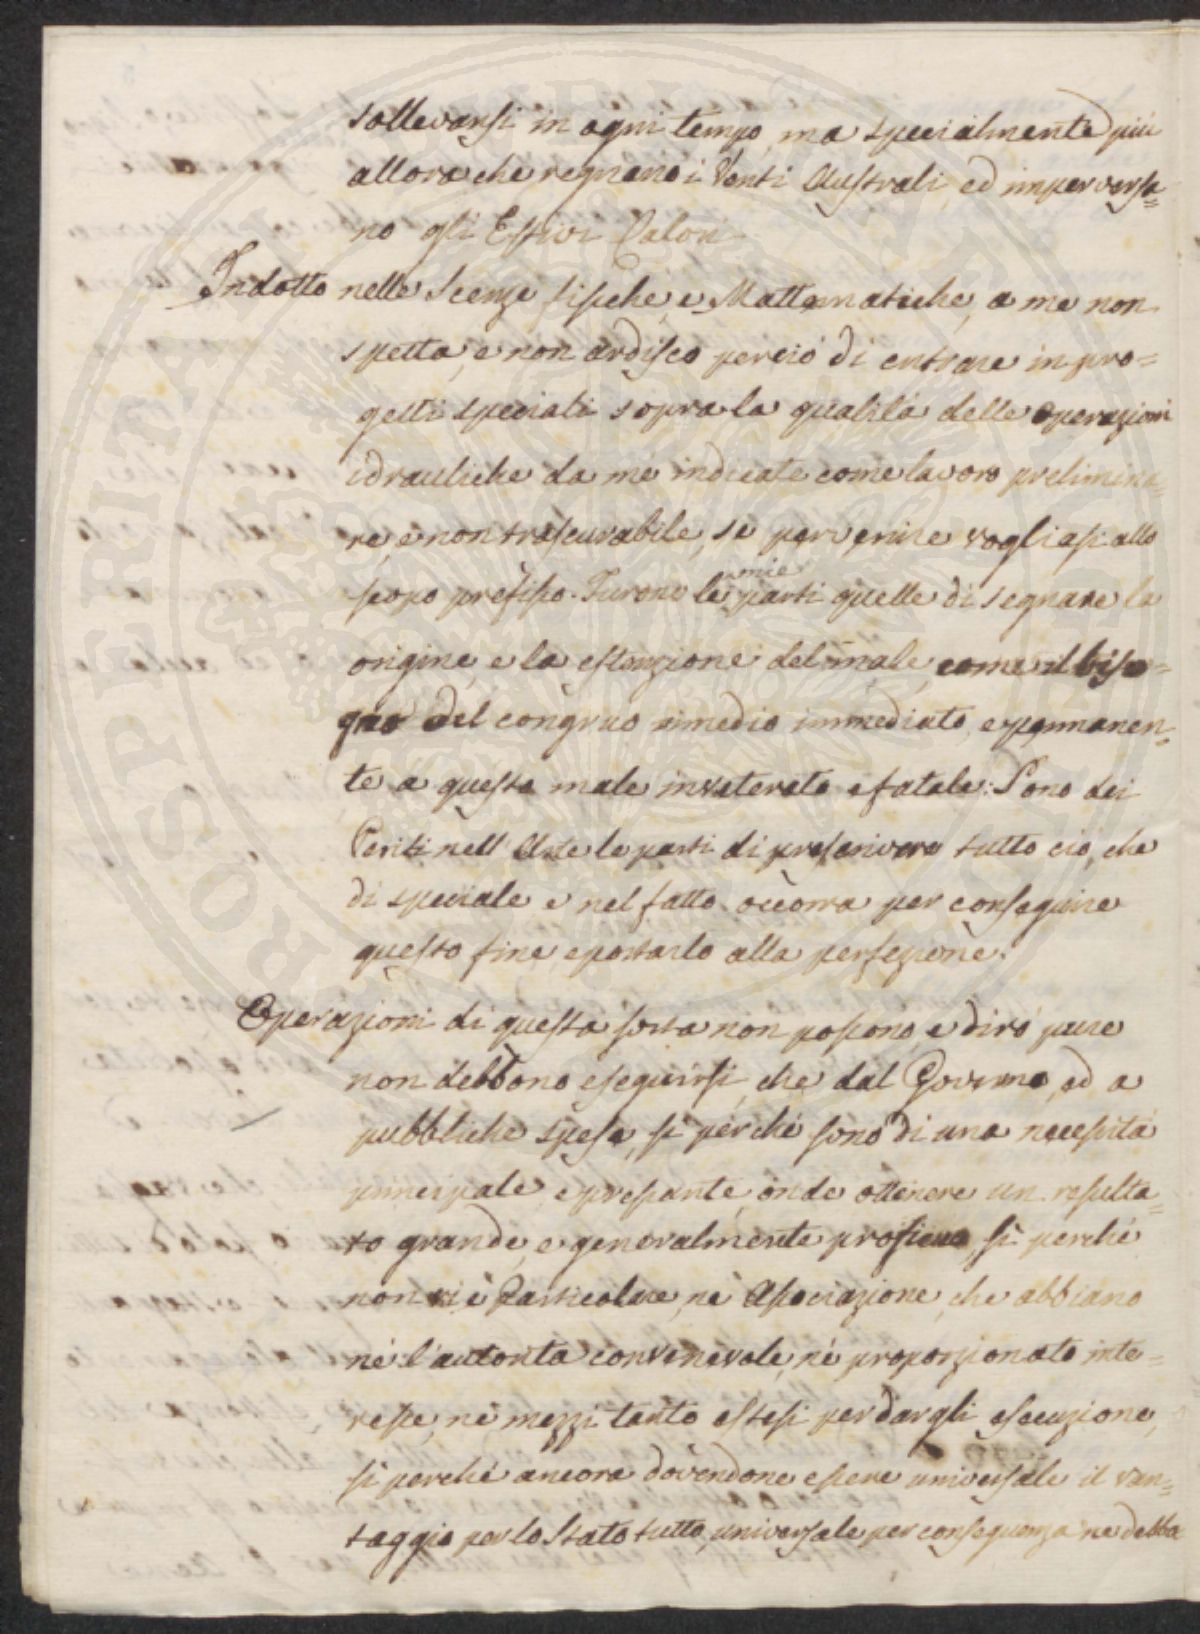 sollevarsi in ogni tempo, ma specialmente più
allora che regnano i Venti Australi, ed imperversa=
no gli Estivi Calori
Indotto nelle Scenze fisiche, e Mattematiche, a me non
spetta, e non ardisco perciò di entrare in pro=
getti speciali sopra la qualità delle Operazioni
idrauliche da me indicate come lavoro prelimina=
re, e non trascurabile, se pervenire vogliasi allo
scopo prefisso. Furono le mie parti quelle di segnare la
origine, e la estenzione del male, come il biso=
gno del congruo rimedio immediato, e permanen=
te a questo male inveterato e fatale: Sono dei
Periti nell'Arte le parti di prescrivere tutto ciò, che
di speciale e nel fatto occorra per conseguire
questo fine, e portarlo alla perfezione.
Operazioni di questa sorta non possono, e dirò pure
non debbono eseguirsi, che dal Governo, ed a
pubbliche spese, sì perchè sono di una necessità
principale e pressante, onde ottenere un resulta=
to grande, e generalmente proficuo, sì perchè
non vi è Particolare, nè Associazione, che abbiano
nè l'autorità convenevole, nè proporzionato inte=
resse, nè mezzi tanto estesi per dargli esecuzione,
sì perchè ancora dovendone essere universale il van=
taggio per lo Stato tutto, universale per conseguenza ne debba
PROSPERITA